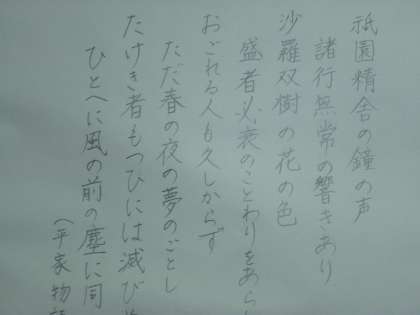 祇園精舎の鐘の声
諸行無常の響きあり
沙羅双樹の花の色
盛者必衰のことわりをあら
おごれる人も久しからず
ただ春の夜の夢のごとし
たけき者もつひには滅び
ひとへに風の前の塵に同
(平家物